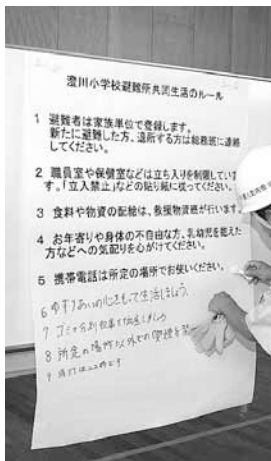 澄川小学校避難所共同生活のルール
1 避難者は家族単位で登録します。
新たに避難した方、退所する方は総務班に連絡
してください。
2 職員室や保健室などは立ち入りを制限していま
す。「立入禁止」などの貼り紙に従ってください。
3 食料や物資の配給は、救援物資班が行います。
4 お年寄りや身体の不自由な方、乳幼児を抱えた
方などへの気配りを心がけてください。
5 携帯電話は所定の場所でお使いください。
6 ゆずりあいの心をもって生活しましょう。
7 ゴミは分別
8 所定の場所以外での喫煙を禁
9 消灯は22時です